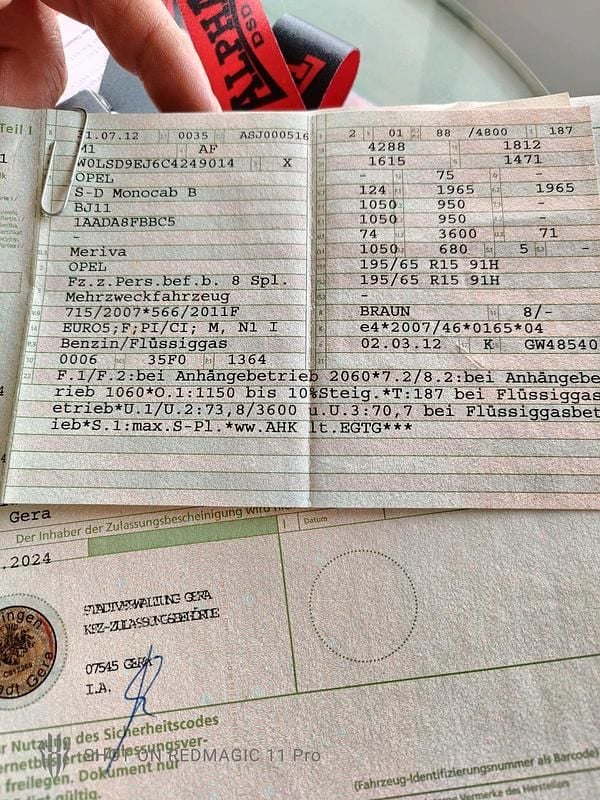 ALPHA
DSD
Teil I
1.07.12 0035 ASJ000516 2 01 88 /4800 187
M1 AF 4288 1812
W0LSD9EJ6C4249014 X 1615 1471
OPEL - 75 -
S-D Monocab B 124 1965 1965
BJ11 1050 950 -
1AADA8FBBC5 1050 950 -
- 74 3600 71
Meriva 1050 680 5 -
OPEL 195/65 R15 91H
Fz.z.Pers.bef.b. 8 Spl. 195/65 R15 91H
Mehrzweckfahrzeug -
715/2007*566/2011F BRAUN 8/-
EURO5;F;PI/CI; M, N1 I e4*2007/46*0165*04
Benzin/Flüssiggas 02.03.12 K GW48540
0006 35F0 1364
F.1/F.2:bei Anhängebetrieb 2060*7.2/8.2:bei Anhängebe
rieb 1060*O.1:1150 bis 10%Steig.*T:187 bei Flüssiggas
etrieb*U.1/U.2:73,8/3600 u.U.3:70,7 bei Flüssiggasbet
ieb*S.1:max.S-Pl.*ww.AHK lt.EGTG***
Gera
Der Inhaber der Zulassungsbescheinigung wird
Datum
.2024
STADTVERWALTUNG GERA
KFZ-ZULASSUNGSBEHÖRDE
07545 GERA
I.A.
ingen
adt Gera
r Nutzung des Sicherheitscodes
freilegen. Dokument nur
gültig.
SHOT ON REDMAGIC 11 Pro
(Fahrzeug-Identifizierungsnummer als Barcode)
Vermerke des Herstellers